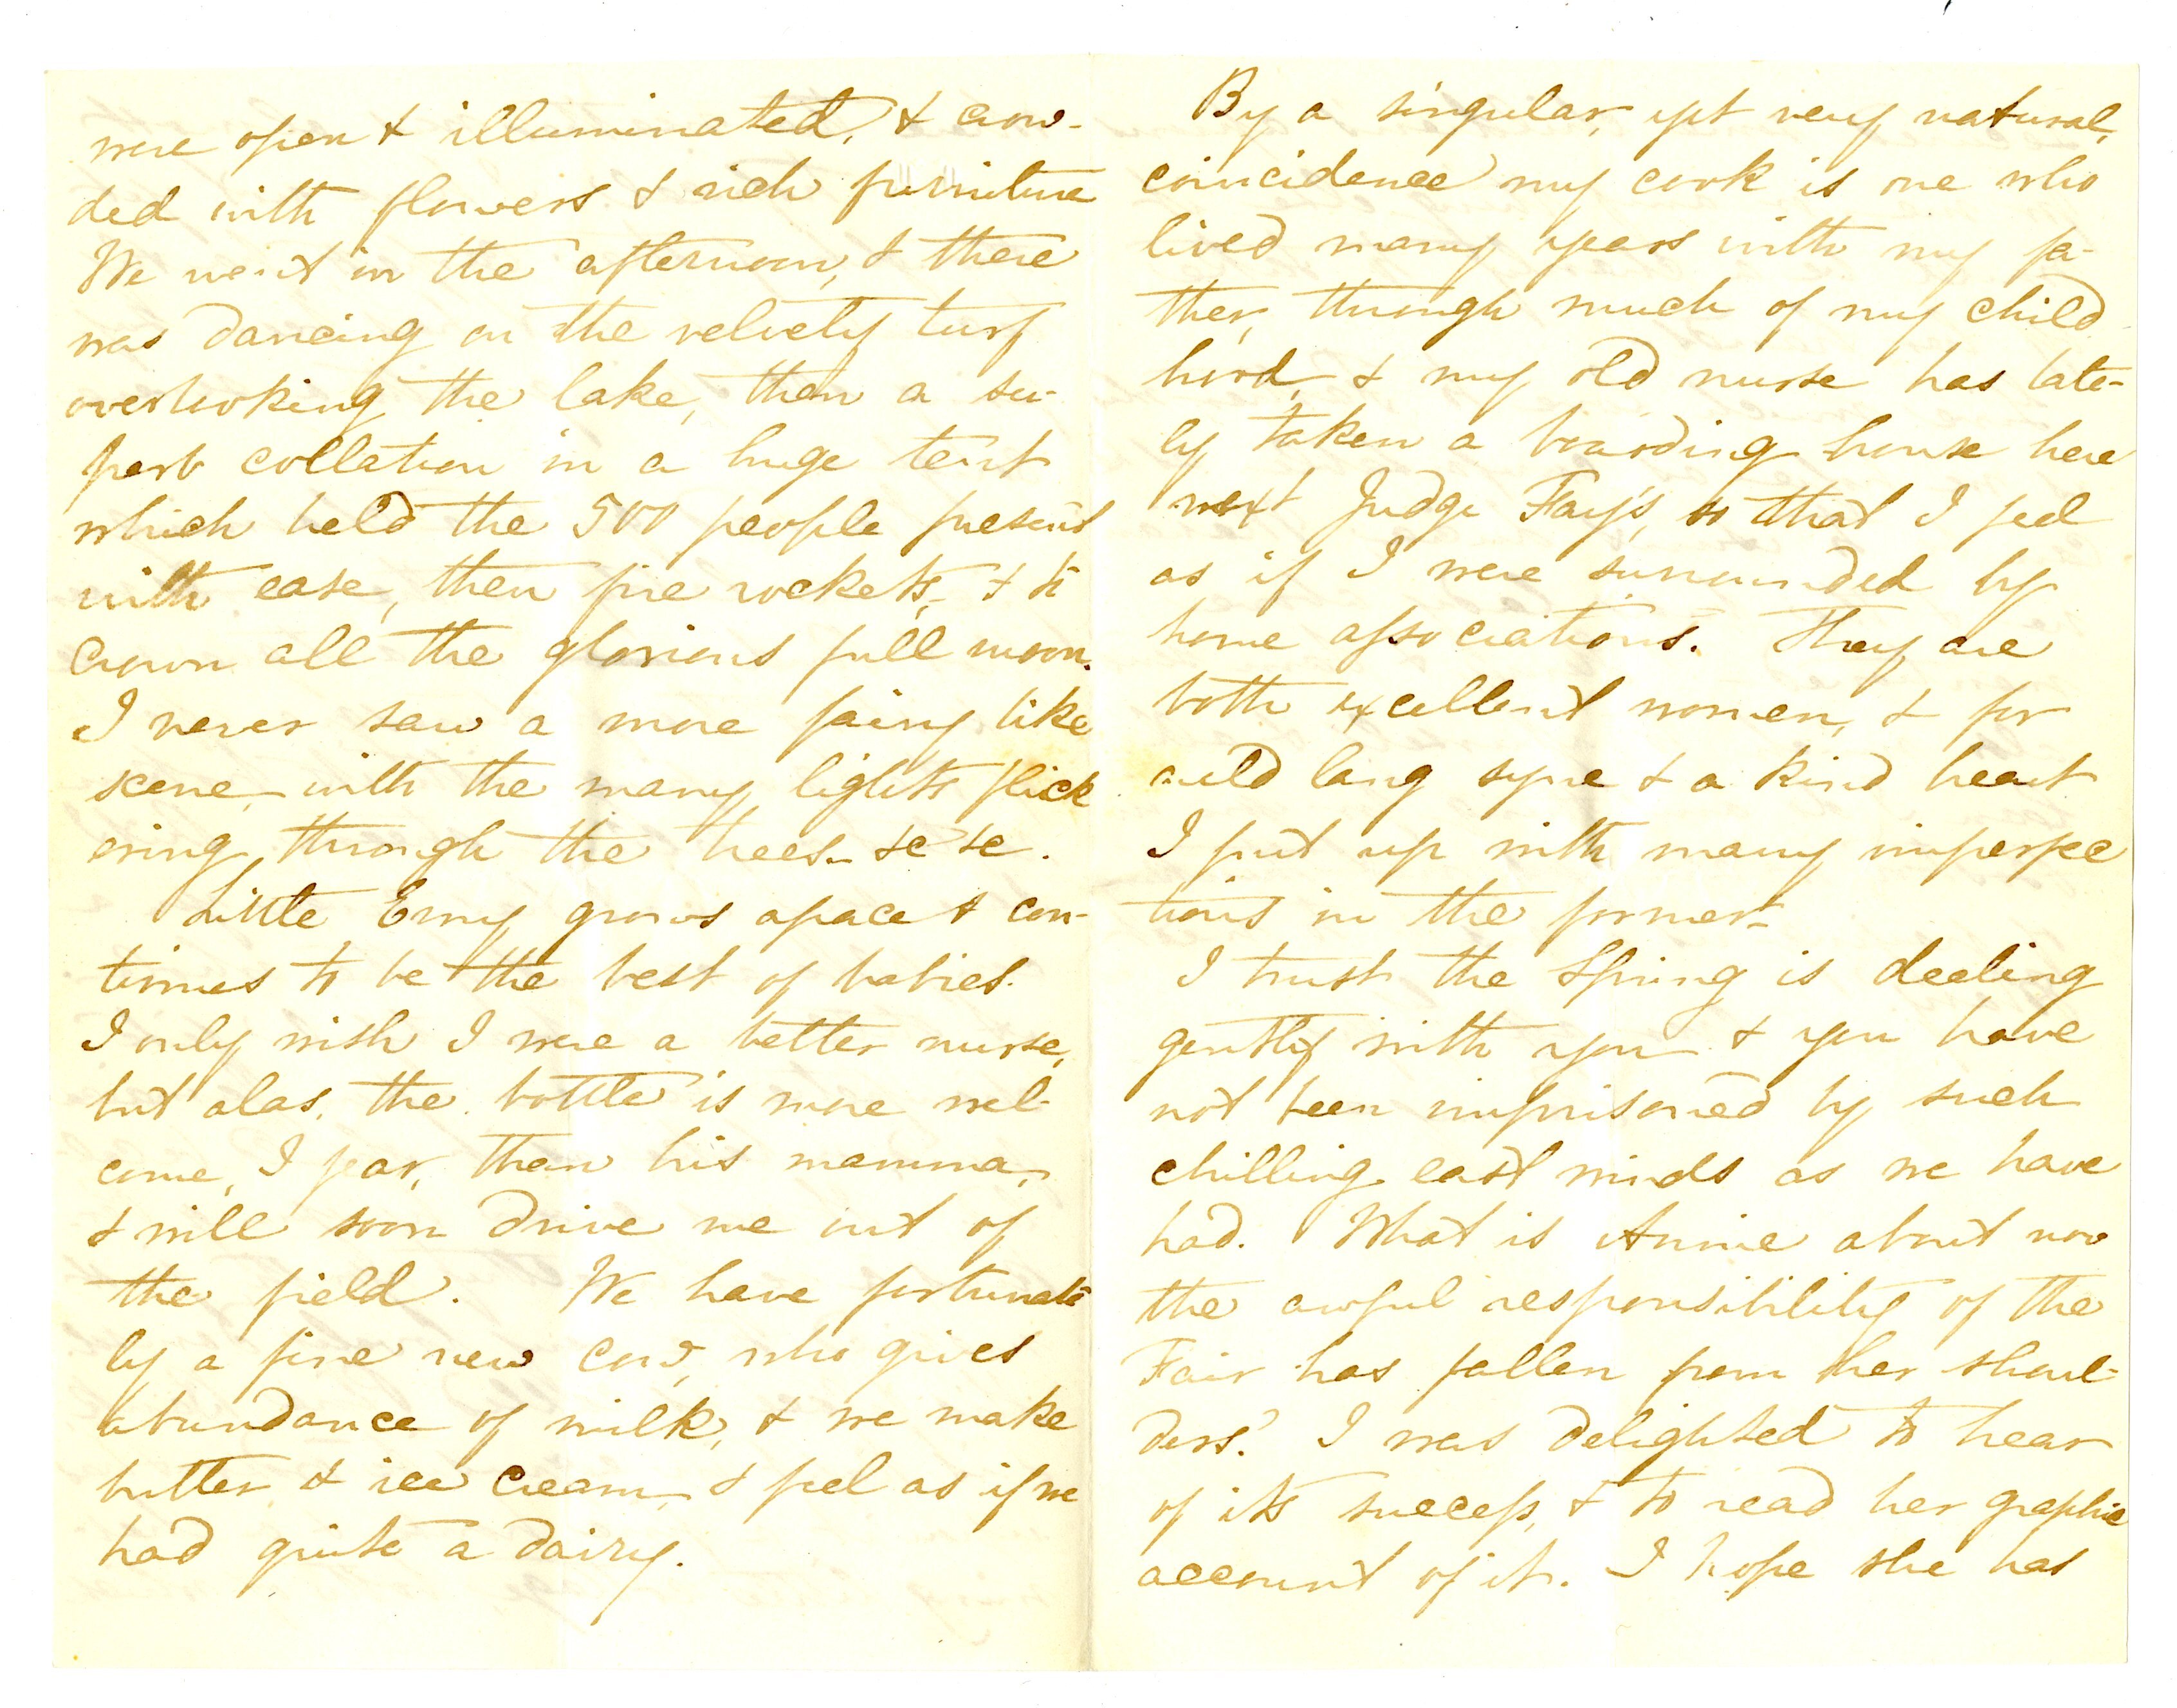 were open & illuminated, & crow-
ded with flowers & rich furniture
We went in the afternoon, & there
was dancing on the velvety turf
overlooking the lake, then a su-
perb collation in a huge tent
which held the 500 people present
with ease, then fire rockets, & to
crown all the glorious full moon.
I never saw a more fairy like
scene, with the many lights flick
ering through the trees - &c &c.
Little Erny grows apace & con-
tinues to be the best of babies.
I only wish I were a better nurse,
but alas, the bottle is more wel-
come, I fear, than his mamma,
& will soon drive me out of
the field. We have fortunate
ly a fine new cow, who gives
abundance of milk, & we make
butter & ice cream, & feel as if we
had quite a dairy.
By a singular, yet very natural,
coincidence my cook is one who
lived many years with my fa-
ther, through much of my child
hood, & my old nurse has late-
ly taken a boarding house here
next Judge Fay's, so that I feel
as if I were surrounded by
home associations. They are
both excellent women, & for
auld lang syne & a kind heart
I put up with many imperfec
tions in the former.
I trust the Spring is deeling
gently with you & you have
not been imprisoned by such
chilling east winds as we have
had. What is Annie about now
the awful responsibility of the
Fair has fallen from her shoul-
ders? I was delighted to hear
of its success, & to read her graphic
account of it. I hope she has